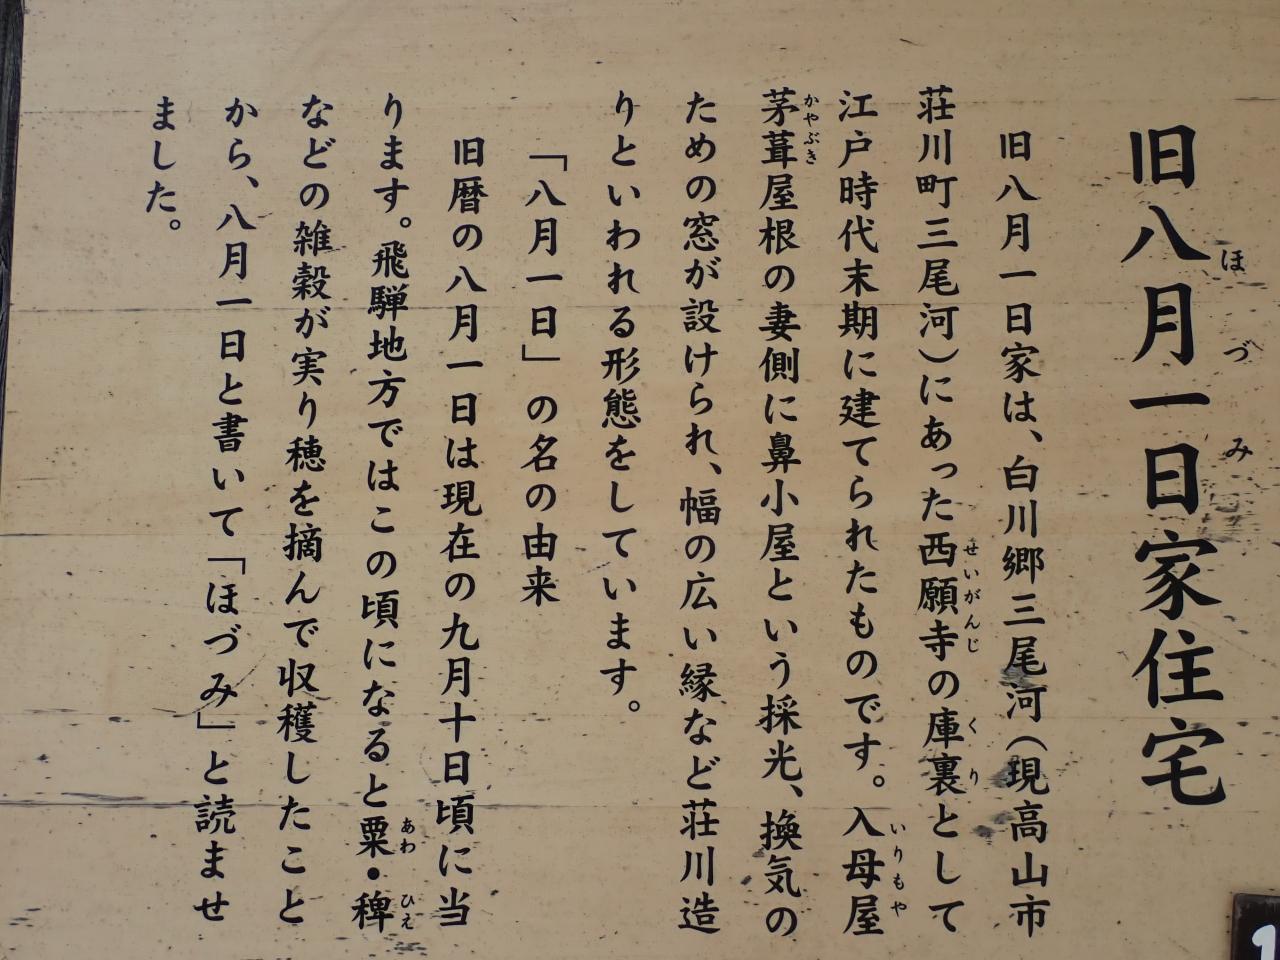 旧八月一日家住宅
ほづみ
旧八月一日家は、白川郷三尾河(現高山市
荘川町三尾河)にあった西願寺の庫裏として
せいがんじ
くり
江戸時代末期に建てられたものです。入母屋
いりもや
茅葺屋根の妻側に鼻小屋という採光、換気の
かやぶき
ための窓が設けられ、幅の広い縁など荘川造
りといわれる形態をしています。
「八月一日」の名の由来
旧暦の八月一日は現在の九月十日頃に当
ります。飛騨地方ではこの頃になると粟・稗
あわ
ひえ
などの雑穀が実り穂を摘んで収穫したこと
から、八月一日と書いて「ほづみ」と読ませ
ました。
1